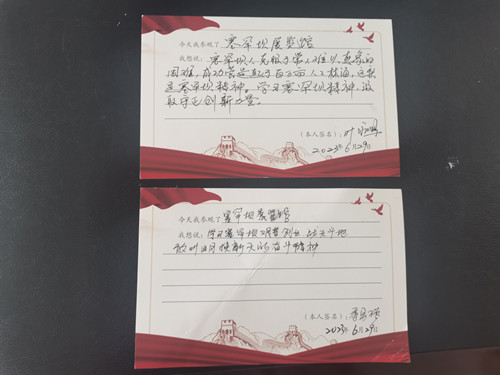 今天我参观了 塞罕坝展览馆
我想说：塞罕坝人克服了常人难以想象的
困难，成功营造起了百万亩人工林海，这就
是塞罕坝精神。学习塞罕坝精神，汲
取守正创新力量。
（本人签名）：叶
2023年6月29日
今天我参观了 塞罕坝展览馆
我想说：学习塞罕坝艰苦创业 战天斗地
敢叫日月换新天的奋斗精神
（本人签名）：李
2023年6月29日